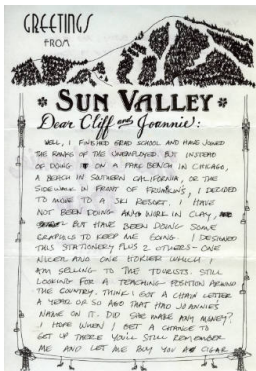 GREETINGS
FROM
* SUN VALLEY *
Dear Cliff and Joannie:
WELL, I FINISHED GRAD SCHOOL AND HAVE JOINED
THE RANKS OF THE UNEMPLOYED. BUT INSTEAD
OF DOING IT ON A PARK BENCH IN CHICAGO,
A BEACH IN SOUTHERN CALIFORNIA, OR THE
SIDEWALK IN FRONT OF FRUMKIN'S, I DECIDED
TO MOVE TO A SKI RESORT. I HAVE
NOT BEEN DOING ANY WORK IN CLAY,
BUT HAVE BEEN DOING SOME
GRAPHICS TO KEEP ME GOING. I DESIGNED
THIS STATIONERY PLUS 2 OTHERS - ONE
NICER AND ONE HOKIER WHICH I
AM SELLING TO THE TOURISTS. STILL
LOOKING FOR A TEACHING POSITION AROUND
THE COUNTRY. THINK I GOT A CHAIN LETTER
A YEAR OR SO AGO THAT HAD JOANNIE'S
NAME ON IT. DID SHE MAKE ANY MONEY?
I HOPE WHEN I GET A CHANCE TO
GET UP THERE YOU'LL STILL REMEMBER
ME AND LET ME BUY YOU A CIGAR